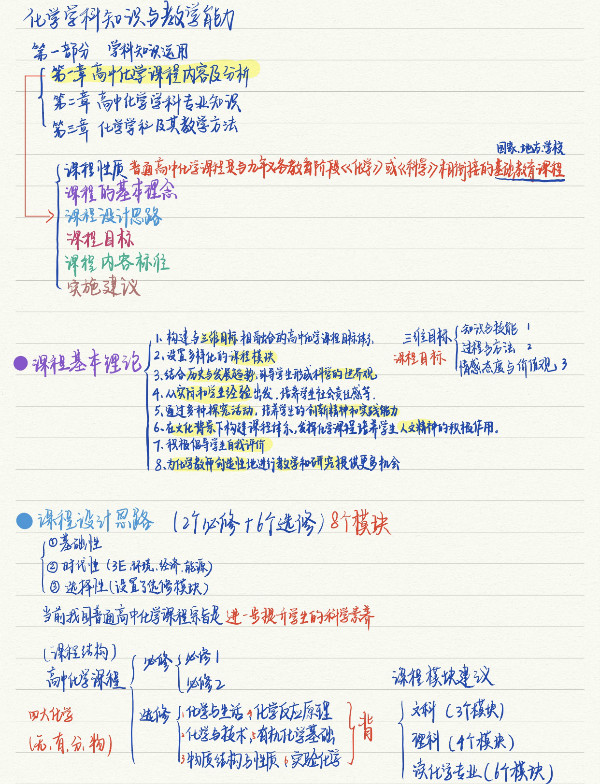 化学学科知识与教学能力
第一部分 学科知识运用
第一章 高中化学课程内容及分析
第二章 高中化学学科专业知识
第三章 化学学科及其教学方法
国家、地方、学校
课程性质 普通高中化学课程是与九年义务教育阶段《化学》或《科学》相衔接的基础教育课程
课程的基本理念
课程设计思路
课程目标
课程内容标准
实施建议
课程基本理论
1. 构建与三维目标相适合的高中化学课程目标体系
2. 设置多样化的课程模块
3. 结合历史与发展趋势,引导学生形成科学的世界观
4. 从实际和学生经验出发,培养学生社会责任感等.
5. 通过多种探究活动,培养学生的创新精神和实践能力
6. 在文化背景下构建课程体系,发挥化学课程培养学生人文精神的积极作用。
7. 积极倡导学生自我评价
8. 为化学教师创造性地进行教学和研究提供更多机会
三维目标
课程目标
知识与技能 1
过程与方法 2
情感态度与价值观 3
课程设计思路 (2个必修+6个选修) 8个模块
①基础性
②时代性 (3E.环境、经济、能源)
③选择性 (设置了选修模块)
当前我国普通高中化学课程宗旨是 进一步提升学生的科学素养
(课程结构)
高中化学课程
必修
必修1
必修2
选修
1化学与生活 4化学反应原理
2化学与技术 5有机化学基础
3物质结构与性质 6实验化学
背
四大化学
(无,有,分,物)
课程模块建议
文科 (3个模块)
理科 (4个模块)
读化学专业 (6个模块)